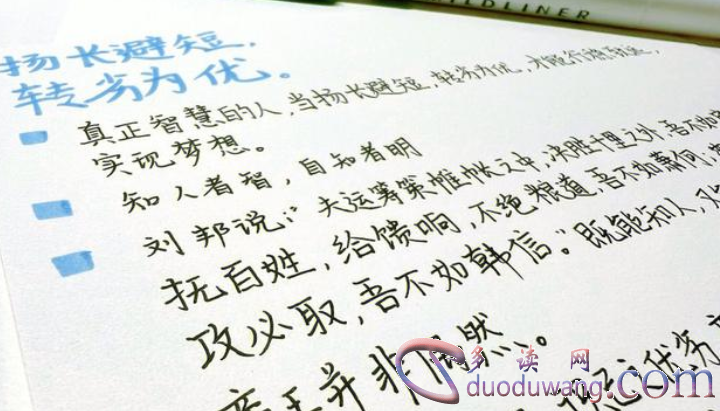 MILDLINER
扬长避短，
转劣为优。
真正智慧的人，当扬长避短，转劣为优，才能行稳致远，
实现梦想。
知人者智，自知者明
刘邦说：“夫运筹策帷帐之中，决胜千里之外，吾不如
抚百姓，给馈响，不绝粮道，吾不如萧何，
攻必取，吾不如韩信。”既能知人，
并非偶然。
劣
多读网
duoduwang.com